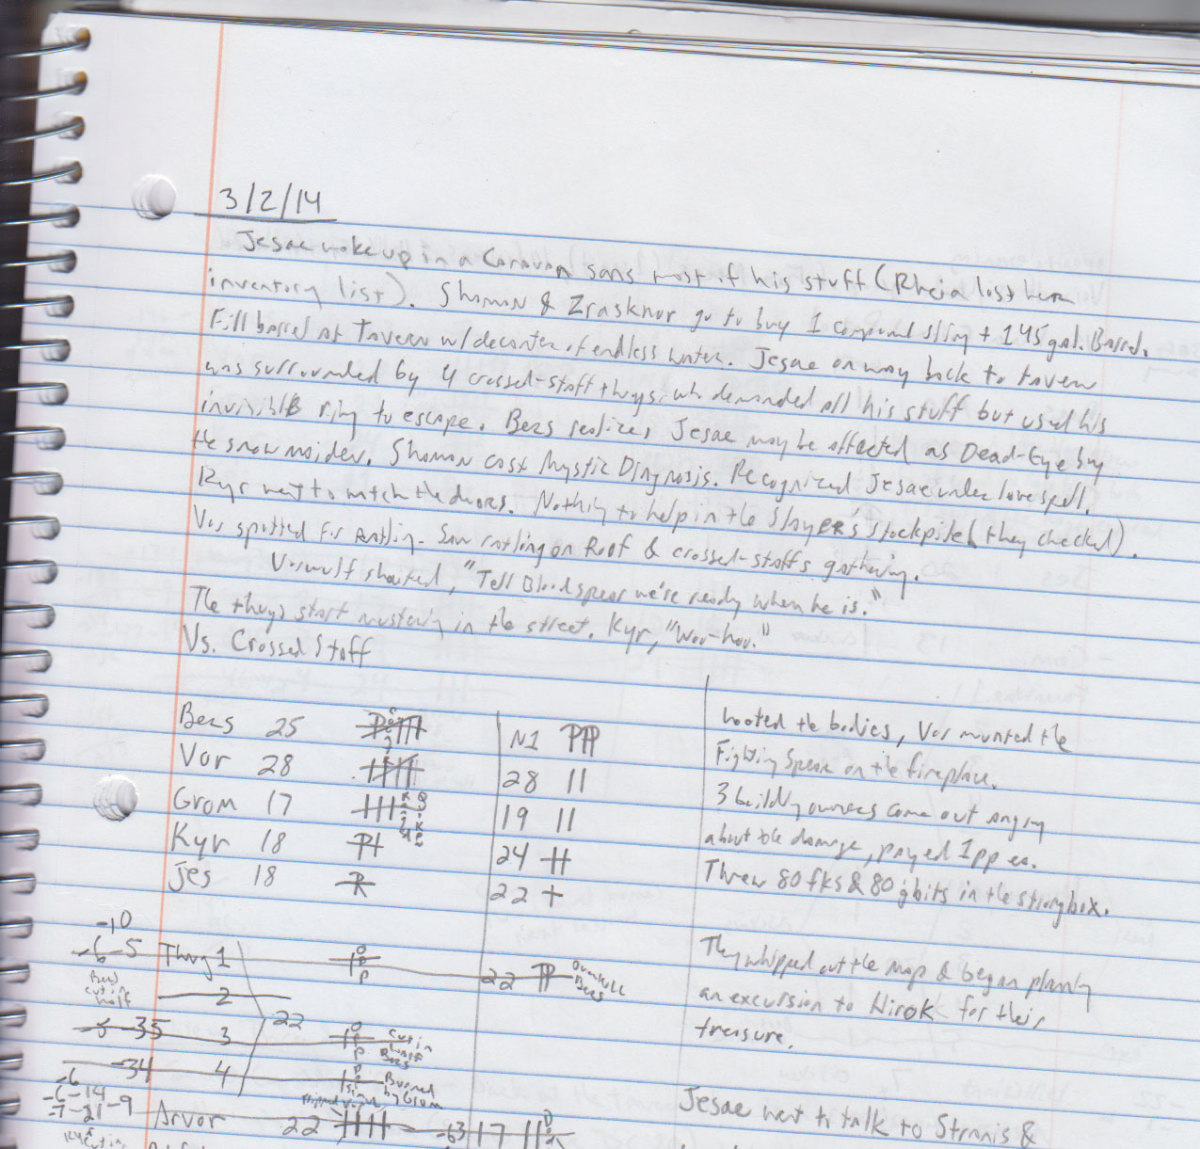 3/2/14
Jesae woke up in a Caravan sans most of his stuff (Rheia lost her
inventory list). Shaman & Zrasknar go to buy 1 compound sling + 1 45 gal. Barrel.
Fill barrel at Tavern w/ decanter of endless water. Jesae on way back to tavern
was surrounded by 4 crossed-staff thugs who demanded all his stuff but used his
invisible ring to escape. Bers realizes Jesae may be affected as Dead-Eye by
the snow maiden. Shaman cast Mystic Diagnosis. Recognized Jesae under love spell.
Kyr went to watch the doors. Nothing to help in the Slayer's stockpile (they checked).
Vor spotted for Ratling. Saw ratling on Roof & crossed-staffs gathering.
Vorwulf shouted, "Tell Bloodspear we're ready when he is."
The thugs start mustering in the street. Kyr, "Woo-hoo."
Vs. Crossed Staff
Bers 25
Vor 28
Grom 17
Kyr 18
Jes 18
N1
28 11
19 11
24
22 +
Looted the bodies, Vor mounted the
Fighting Spear on the fireplace.
3 building owners come out angry
about the damage, payed 1pp ea.
Threw 80 fks & 80 gbits in the strongbox.
They whipped out the map & began planning
an excursion to Hirok for their
treasure.
Jesae went to talk to Strnnis &
-10
-6 -5 Thug 1
22 Overkill Bers
Bers cut in half
2
22
-35 3 cut in half Bers
-34 4 Burned by Grom
-6
-6 -14
-7 -21 -9 Arvor 22
-63 17